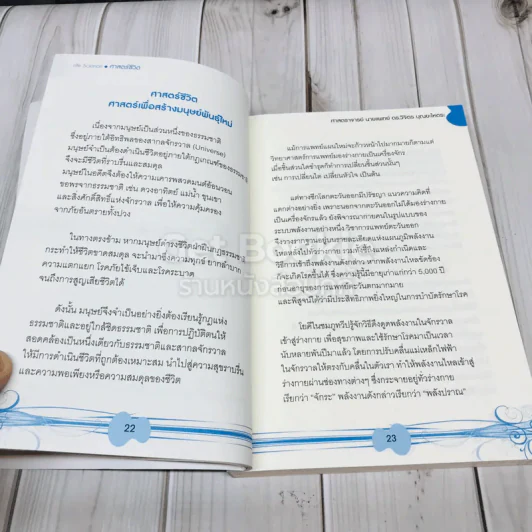 Life Science • ศาสตร์ชีวิต
ศาสตร์ชีวิต
ศาสตร์เพื่อสร้างมนุษย์พันธุ์ใหม่
เนื่องจากมนุษย์เป็นส่วนหนึ่งของธรรมชาติ
ซึ่งอยู่ภายใต้อิทธิพลของสากลจักรวาล (Universe)
มนุษย์จำเป็นต้องดำเนินชีวิตอยู่ภายใต้กฎเกณฑ์ของธรรมชาติ
จึงจะมีชีวิตที่ราบรื่นและสมดุล
มนุษย์ในอดีตจึงต้องให้ความเคารพสวดมนต์อ้อนวอน
ขอพรจากธรรมชาติ เช่น ดวงอาทิตย์ แม่น้ำ ขุนเขา
และสิ่งศักดิ์สิทธิ์แห่งจักรวาล เพื่อให้ความคุ้มครอง
จากภัยอันตรายทั้งปวง
ในทางตรงข้าม หากมนุษย์ดำรงชีวิตฝ่าฝืนกฎธรรมชาติ
กระทำให้ชีวิตขาดสมดุล จะนำมาซึ่งความทุกข์ ยากลำบาก
ความแตกแยก โรคภัยไข้เจ็บและโรคระบาด
จนถึงการสูญเสียชีวิตได้
ดังนั้น มนุษย์จึงจำเป็นอย่างยิ่งต้องเรียนรู้กฎแห่ง
ธรรมชาติและอยู่ใกล้ชิดธรรมชาติ เพื่อการปฏิบัติตนให้
สอดคล้องเป็นหนึ่งเดียวกับธรรมชาติและสากลจักรวาล
ให้มีการดำเนินชีวิตที่ถูกต้องเหมาะสม นำไปสู่ความสุขราบรื่น
และความพอเพียงหรือความสมดุลของชีวิต
22
ศาสตราจารย์ นายแพทย์ ดร.วิจิตร บุณยะโหตระ
แม้การแพทย์แผนใหม่จะก้าวหน้าไปมากมายก็ตามแต่
วิทยาศาสตร์การแพทย์มองร่างกายเป็นเครื่องจักร
เมื่อชิ้นส่วนใดชำรุดก็ทำการเปลี่ยนชิ้นส่วนนั้นๆ
เช่น การเปลี่ยนไต เปลี่ยนหัวใจ เป็นต้น
แต่ทางซีกโลกตะวันออกมีปรัชญา แนวความคิดที่
แตกต่างอย่างยิ่ง เพราะนอกจากตะวันออกไม่ได้มองร่างกาย
เป็นเครื่องจักรแล้ว ยังพิจารณากายคนในรูปแบบของ
ระบบพลังงานอย่างหนึ่ง วิชาการแพทย์ตะวันออก
จึงวางรากฐานอยู่บนรายละเอียดแห่งแผนภูมิพลังงาน
ไหลหลั่งไปทั่วร่างกาย รวมทั้งรู้ถึงแหล่งกำเนิดและ
วิธีการเข้าถึงพลังงานดังกล่าว หากพลังงานไหลขัดข้อง
ก็จะเกิดโรคขึ้นได้ ซึ่งความรู้นี้มีอายุเก่าแก่กว่า 5,000 ปี
ก่อนอายุของการแพทย์ตะวันตกมากมาย
และพิสูจน์ได้ว่ามีประสิทธิภาพยิ่งใหญ่ในการบำบัดรักษาโรค
โยคีในชมภูทวีปรู้จักวิธีดึงดูดพลังงานในจักรวาล
เข้าสู่ร่างกาย เพื่อสุขภาพและใช้รักษาโรคมาเป็นเวลา
นับหลายพันปีมาแล้ว โดยการปรับคลื่นแม่เหล็กไฟฟ้า
ในจักรวาลให้ตรงกับคลื่นในตัวเรา ทำให้พลังงานไหลเข้าสู่
ร่างกายผ่านช่องทางต่างๆ ซึ่งกระจายอยู่ทั่วร่างกาย
เรียกว่า “จักระ” พลังงานดังกล่าวเรียกว่า “พลังปราณ”
23